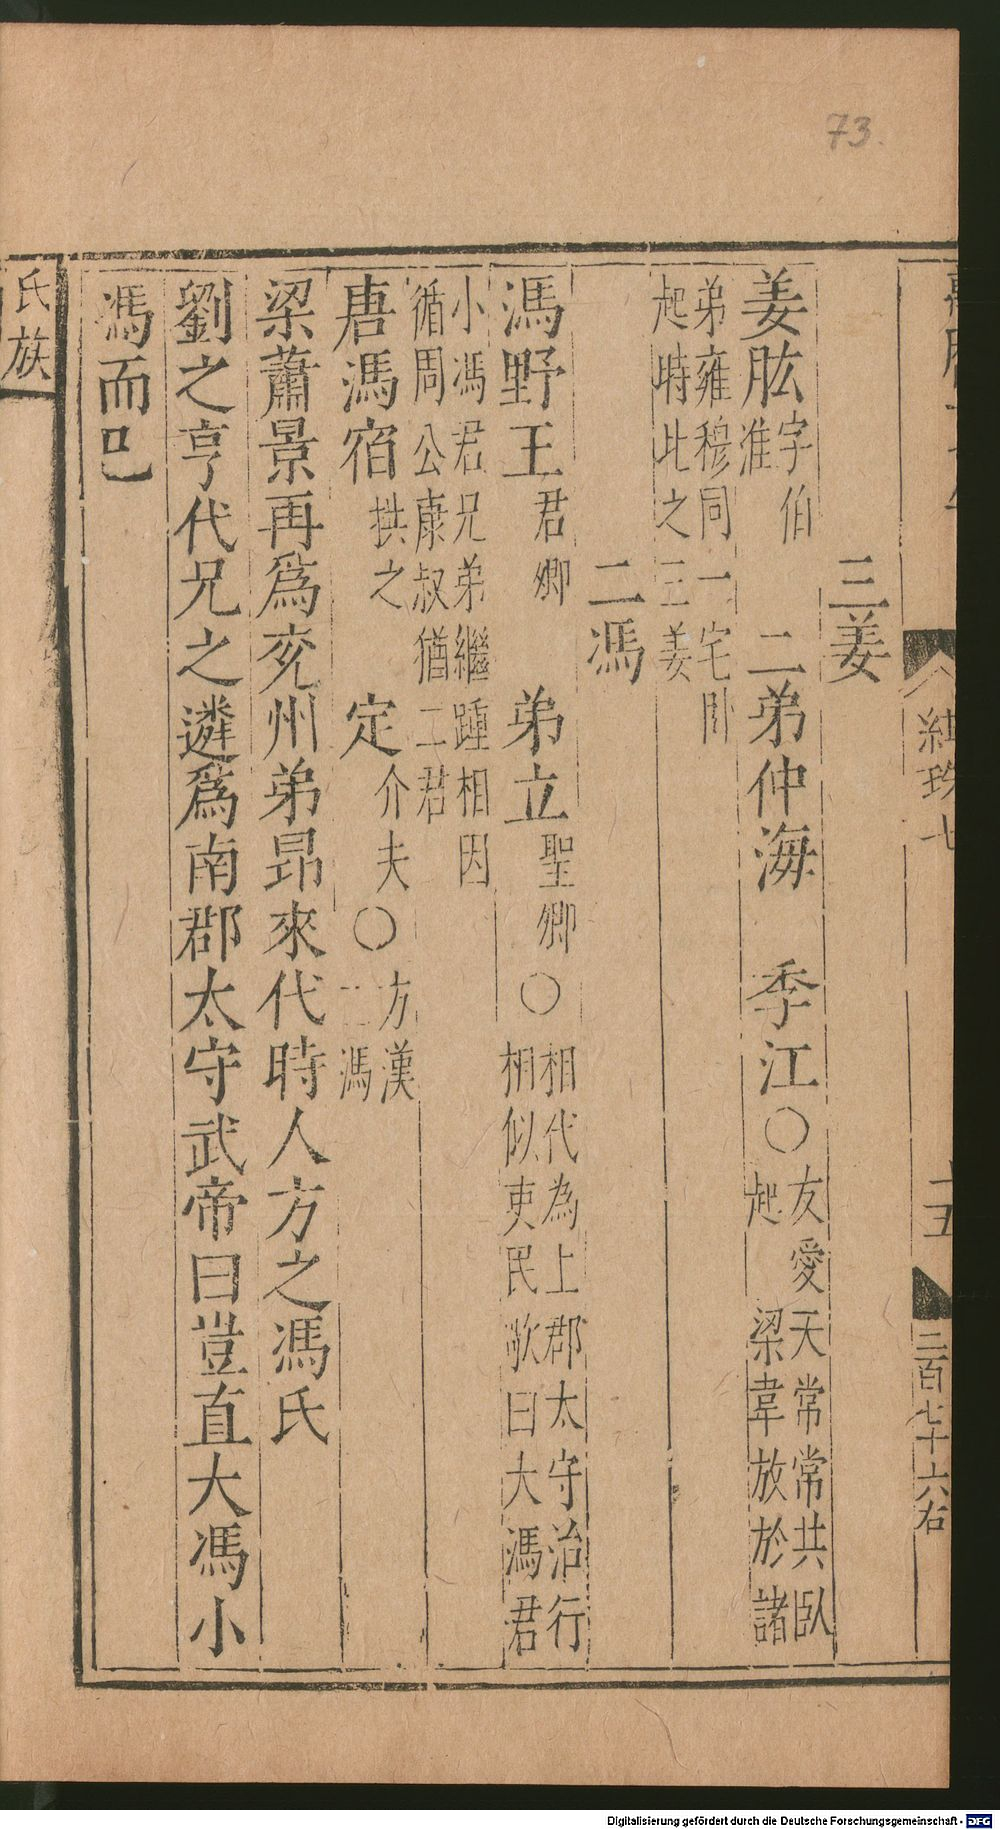 73.
紺珠七
二百七十六右
三姜
姜肱字伯淮 二弟仲海 季江○友愛天常常共臥起 梁韋放於諸
弟雍穆同一宅卧起時比之三姜
二馮
馮野王君卿 弟立聖卿○相代為上郡太守治行相似吏民歌曰大馮君
小馮君兄弟繼踵相因循周公康叔猶二君
唐馮宿拱之 定介夫○方漢二馮
梁蕭景再爲兗州弟昂來代時人方之馮氏
劉之亨代兄之遴爲南郡太守武帝曰豈直大馮小
馮而已
氏族
Digitalisierung gefördert durch die Deutsche Forschungsgemeinschaft - DFG